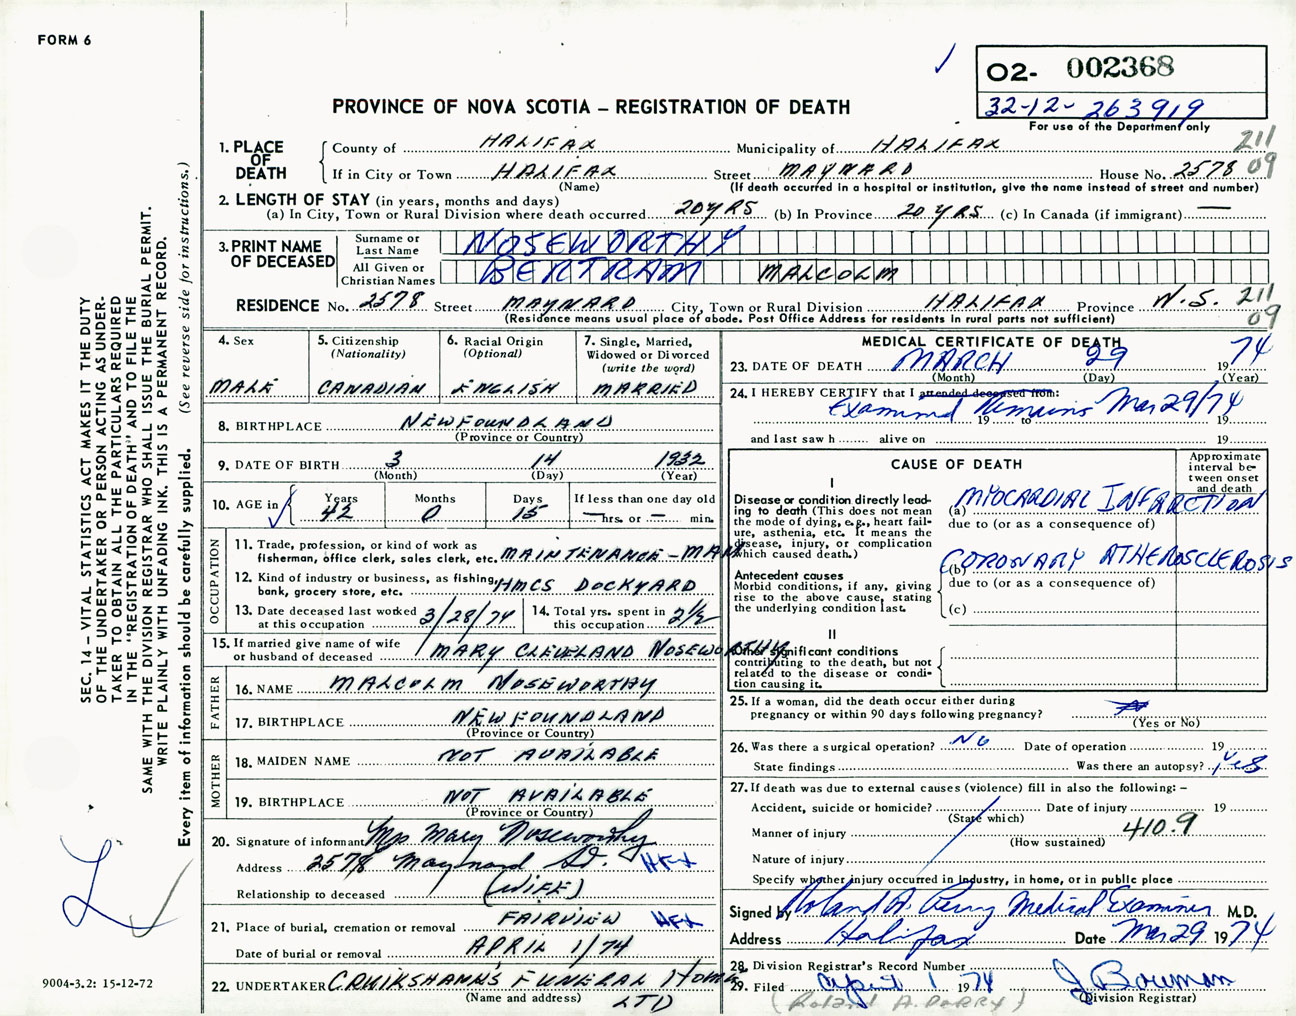 FORM 6
O2- 002368
32-12- 263919
For use of the Department only
PROVINCE OF NOVA SCOTIA – REGISTRATION OF DEATH
211
09
1. PLACE OF DEATH
County of HALIFAX Municipality of HALIFAX
If in City or Town HALIFAX Street MAYNARD House No. 2578
(Name) (If death occurred in a hospital or institution, give the name instead of street and number)
2. LENGTH OF STAY (in years, months and days)
(a) In City, Town or Rural Division where death occurred 20 YRS (b) In Province 20 YRS (c) In Canada (if immigrant) —
3. PRINT NAME OF DECEASED
Surname or Last Name NOSEWORTHY
All Given or Christian Names BERTRAM MALCOLM
RESIDENCE No. 2578 Street MAYNARD City, Town or Rural Division HALIFAX Province N.S. 211
09
(Residence means usual place of abode. Post Office Address for residents in rural parts not sufficient)
4. Sex
MALE
5. Citizenship
(Nationality)
CANADIAN
6. Racial Origin
(Optional)
ENGLISH
7. Single, Married,
Widowed or Divorced
(write the word)
MARRIED
8. BIRTHPLACE NEWFOUNDLAND
(Province or Country)
9. DATE OF BIRTH 3 14 1932
(Month) (Day) (Year)
10. AGE in
Years Months Days If less than one day old
42 0 15 — hrs. or — min.
OCCUPATION
11. Trade, profession, or kind of work as
fisherman, office clerk, sales clerk, etc. MAINTENANCE-MAN
12. Kind of industry or business, as fishing,
bank, grocery store, etc. HMCS DOCKYARD
13. Date deceased last worked
at this occupation 3/28/74
14. Total yrs. spent in
this occupation 2½
15. If married give name of wife
or husband of deceased MARY CLEVELAND NOSEWORTHY
FATHER
16. NAME MALCOLM NOSEWORTHY
17. BIRTHPLACE NEWFOUNDLAND
(Province or Country)
MOTHER
18. MAIDEN NAME NOT AVAILABLE
19. BIRTHPLACE NOT AVAILABLE
(Province or Country)
20. Signature of informant Mrs Mary Noseworthy
Address 2578 Maynard St. HFX
Relationship to deceased (WIFE)
21. Place of burial, cremation or removal FAIRVIEW HFX
Date of burial or removal APRIL 1/74
22. UNDERTAKER CRUIKSHANK'S FUNERAL HOME
(Name and address) LTD
MEDICAL CERTIFICATE OF DEATH
23. DATE OF DEATH MARCH 29 1974
(Month) (Day) (Year)
24. I HEREBY CERTIFY that I attended deceased from:
Examined Remains Mar 29/74
19 to 19
and last saw h alive on 19
CAUSE OF DEATH
Approximate
interval be-
tween onset
and death
I
Disease or condition directly lead-
ing to death (This does not mean
the mode of dying, e.g., heart fail-
ure, asthenia, etc. It means the
disease, injury, or complication
which caused death.)
(a) MYOCARDIAL INFARCTION
due to (or as a consequence of)
Antecedent causes
Morbid conditions, if any, giving
rise to the above cause, stating
the underlying condition last.
(b) CORONARY ATHEROSCLEROSIS
due to (or as a consequence of)
(c)
II
Other significant conditions
contributing to the death, but not
related to the disease or condi-
tion causing it.
25. If a woman, did the death occur either during
pregnancy or within 90 days following pregnancy?
(Yes or No)
26. Was there a surgical operation? No Date of operation 19
State findings Was there an autopsy? Yes
27. If death was due to external causes (violence) fill in also the following: –
Accident, suicide or homicide? Date of injury 19
(State which)
Manner of injury 410.9
(How sustained)
Nature of injury
Specify whether injury occurred in Industry, in home, or in public place
Signed by Roland A. Perry Medical Examiner M.D.
Address Halifax Date Mar 29 1974
28. Division Registrar's Record Number
29. Filed April 1 1974 J Bowman
(Division Registrar)
(ROLAND A. PERRY)
SEC. 14 – VITAL STATISTICS ACT MAKES IT THE DUTY
OF THE UNDERTAKER OR PERSON ACTING AS UNDER-
TAKER TO OBTAIN ALL THE PARTICULARS REQUIRED
IN THE "REGISTRATION OF DEATH" AND TO FILE THE
SAME WITH THE DIVISION REGISTRAR WHO SHALL ISSUE THE BURIAL PERMIT.
WRITE PLAINLY WITH UNFADING INK. THIS IS A PERMANENT RECORD.
Every item of information should be carefully supplied. (See reverse side for instructions.)
9004-3.2: 15-12-72